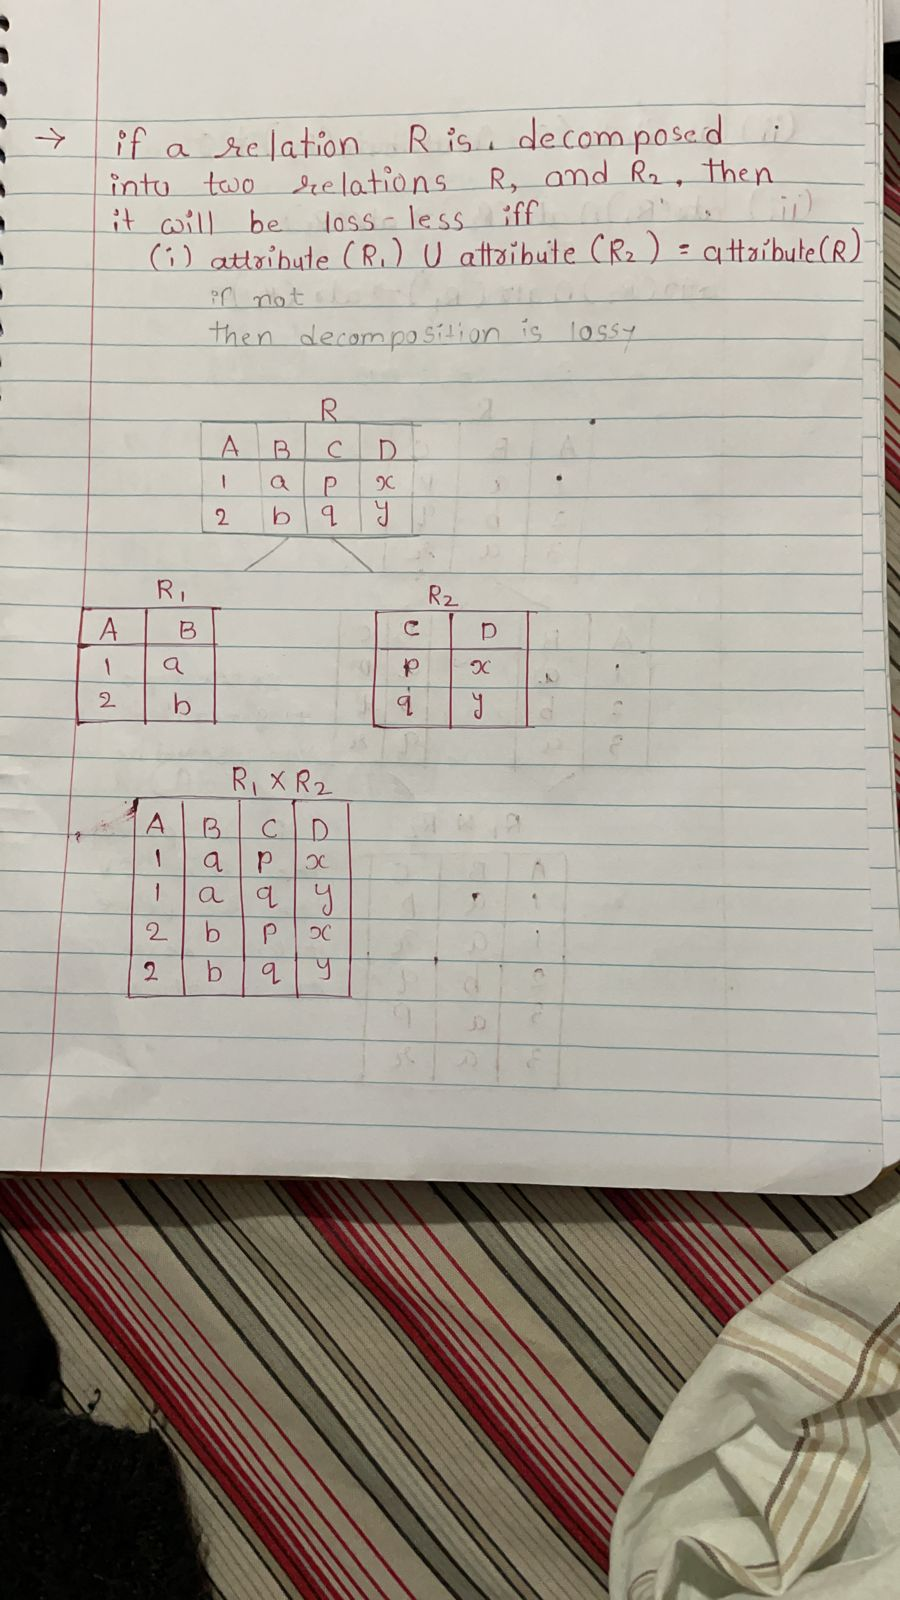 → if a relation R is decomposed
into two relations R1 and R2, then
it will be loss-less iff
(i) attribute (R1) U attribute (R2) = attribute(R)
if not
then decomposition is lossy
R
A B C D
1 a p x
2 b q y
R1
A B
1 a
2 b
R2
C D
p x
q y
R1 X R2
A B C D
1 a p x
1 a q y
2 b p x
2 b q y